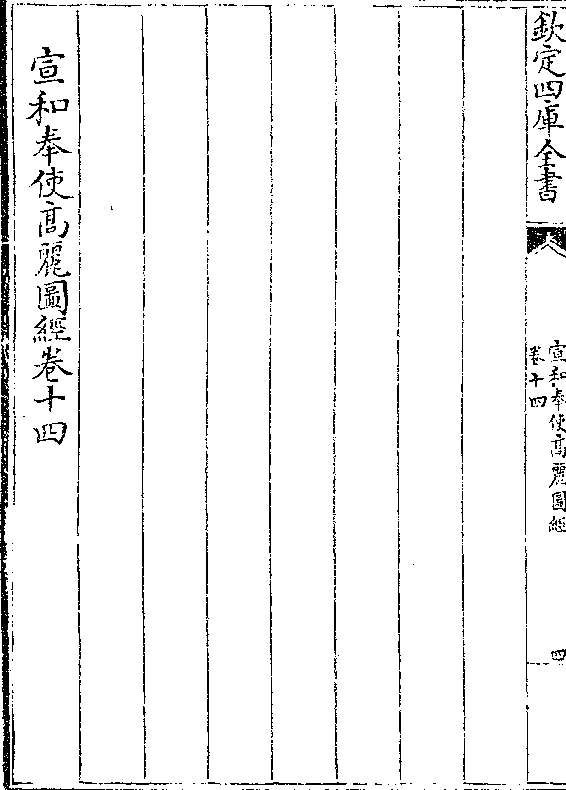 欽定四庫全書
宣和奉使髙麗圖經
卷十四
四
宣和奉使髙麗圖經卷十四